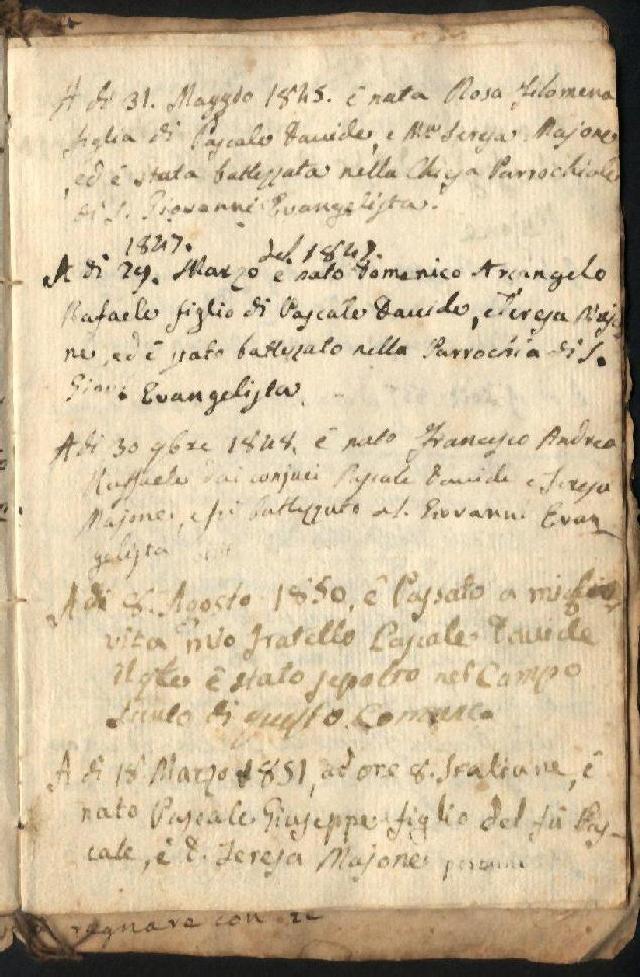 A dì 31. Maggio 1845. è nata Rosa Filomena
figlia di Pascale Davide, e Mª Teresa Majone
ed è stata battezzata nella Chiesa Parrochiale
di S. Giovanni Evangelista.
1847. del 1847.
A dì 29. Marzo è nato Domenico Arcangelo
Rafaele figlio di Pascale Davide, e Teresa Majo
ne, ed è stato battezzato nella Parrochia di S.
Giov. Evangelista
A dì 30 9bre 1848. è nato Francesco Andrea
Raffaele dai conjuci Pascale Davide e Teresa
Majone, e fù battezzato a S. Giovanni Evan
gelista
A dì 8. Agosto 1850, è Passato a miglior
vita mio fratello Pascale Davide
il qle è stato sepolto nel Campo
Santo di questo Comune.
A dì 18 Marzo 1851, ad ore 8. Italiane, è
nato Pascale Giuseppe figlio del fù Pas-
cale, è D. Teresa Majone
regnare con